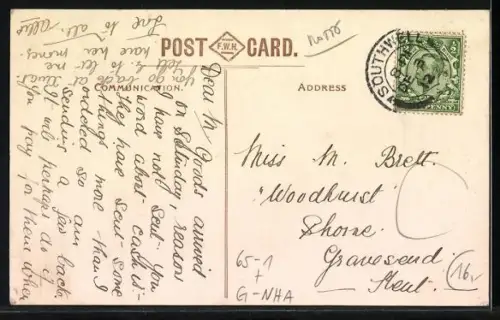 POST CARD.
F.W.H.
COMMUNICATION.
ADDRESS
SOUTHWELL
Dear M Goods arrived
on Saturday, reasons
I have not sent you
word about cash is -
they have sent some
things more than I
ordered so am
sending a few back
it will perhaps do if
you pay for them when
you go back
tell her to let me
have her
Love to all.
Miss M. Brett.
"Woodhurst"
Shorne
Gravesend
Kent.
65-1
+
G-NHA
16